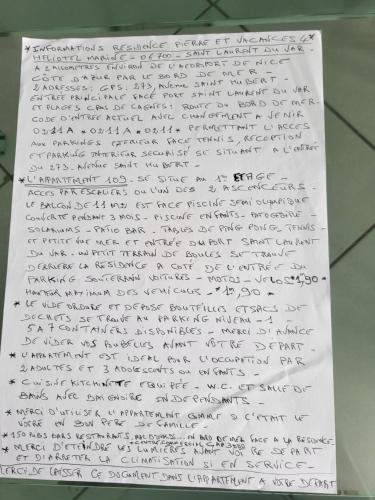 * INFORMATIONS RESIDENCE PIERRE ET VACANCES 4*
HELIOTEL MARINE - 06700 - SAINT LAURENT DU VAR -
A 2 KILOMETRES ENVIRON DE L'AEROPORT DE NICE
CÔTE D'AZUR PAR LE BORD DE MER -
2 ADRESSES: GPS: 273 AVENUE SAINT HUBERT -
ENTREE PRINCIPALE FACE PORT SAINT LAURENT DU VAR
ET PLAGES CROS DE CAGNES: ROUTE DU BORD DE MER-
CODE D'ENTREE ACTUEL AVEC CHANGEMENT A VENIR
0211A * 0211A * 0211* PERMETTANT L'ACCES
AUX PARKINGS EXTERIEUR FACE TENNIS, RECEPTION
ET PARKING INTERIEUR SECURISE SE SITUANT A L'ENTREE
DU 273. AVENUE SAINT HUBERT -
* L'APPARTEMENT 109 - SE SITUE AU 1er ETAGE -
ACCES PAR ESCALIERS OU L'UN DES 2 ASCENCEURS -
LE BALCON DE 11 M2 EST FACE PISCINE SEMI OLYMPIQUE
COUVERTE PENDANT 3 MOIS - PISCINE ENFANTS - PATOGEOIRE -
SOLARIUMS - PATIO BAR - TABLES DE PING PONG, TENNIS -
ET PETITE VUE MER ET ENTREE DU PORT SAINT LAURENT
DU VAR - UN PETIT TERRAIN DE BOULES SE TROUVE
DERRIERE LA RESIDENCE A COTÉ DE L'ENTREE DU
PARKING SOUTERRAIN VOITURES - MOTOS - VELOS *1,90*
HAUTEUR MAXIMUM DES VEHICULES - *1,90 *
* LE VIDE ORDURE ET DEPOSE BOUTEILLES ET SACS DE
DECHETS SE TROUVE AU PARKING NIVEAU - 1 -
5 A 7 CONTAINERS DISPONIBLES - MERCI D'AVANCE
DE VIDER VOS POUBELLES AVANT VÔTRE DEPART -
* L'APPARTEMENT EST IDEAL POUR L'OCCUPATION PAR
2 ADULTES ET 3 ADOLESCENTS OU ENFANTS -
* CUISINE KITCHINETTE EQUIPÉE - W.C. ET SALLE DE
BAINS AVEC BAIGNOIRE INDEPENDANTS -
* MERCI D'UTILISER L'APPARTEMENT COMME SI C'ETAIT LE
VÔTRE EN BON PERE DE FAMILLE -
* 150 PUBS BARS RESTAURANTS EN BORD DE MER FACE A LA RESIDENCE
+ CENTRE COMMERCIAL CAP 3000
* MERCI D'ETEINDRE LES LUMIERES AVANT VOTRE DEPART
ET D'ARRETER LA CLIMATISATION SI EN SERVICE -
MERCI DE LAISSER CE DOCUMENT DANS L'APPARTEMENT A VOTRE DEPART